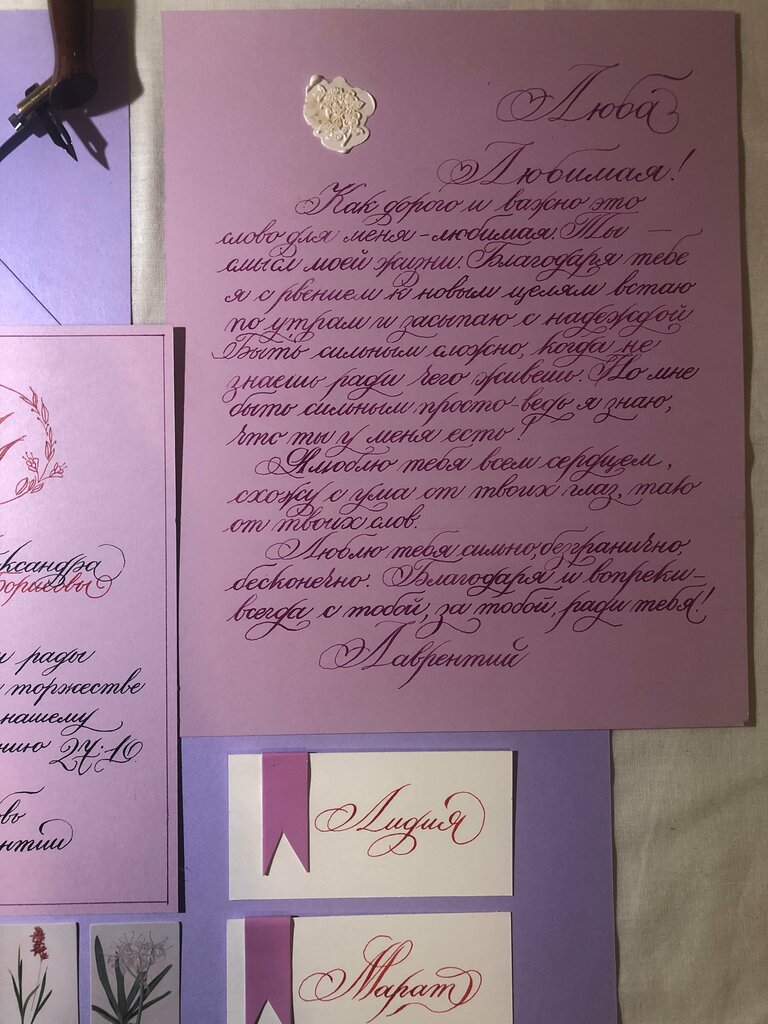 Люба
Любимая!
Как дорого и важно это
слово для меня - любимая. Ты —
смысл моей жизни. Благодаря тебе
я с рвением к новым целям встаю
по утрам и засыпаю с надеждой.
Быть сильным сложно, когда не
знаешь ради чего живёшь. Но мне
быть сильным просто - ведь я знаю,
что ты у меня есть!
Я люблю тебя всем сердцем,
схожу с ума от твоих глаз, таю
от твоих слов.
Люблю тебя сильно, безгранично,
бесконечно. Благодаря и вопреки -
всегда с тобой, за тобой, ради тебя!
Лаврентий
ксандра
рады
торжестве
нашему
нию 27.10
овь
нтии
Лидия
Марат